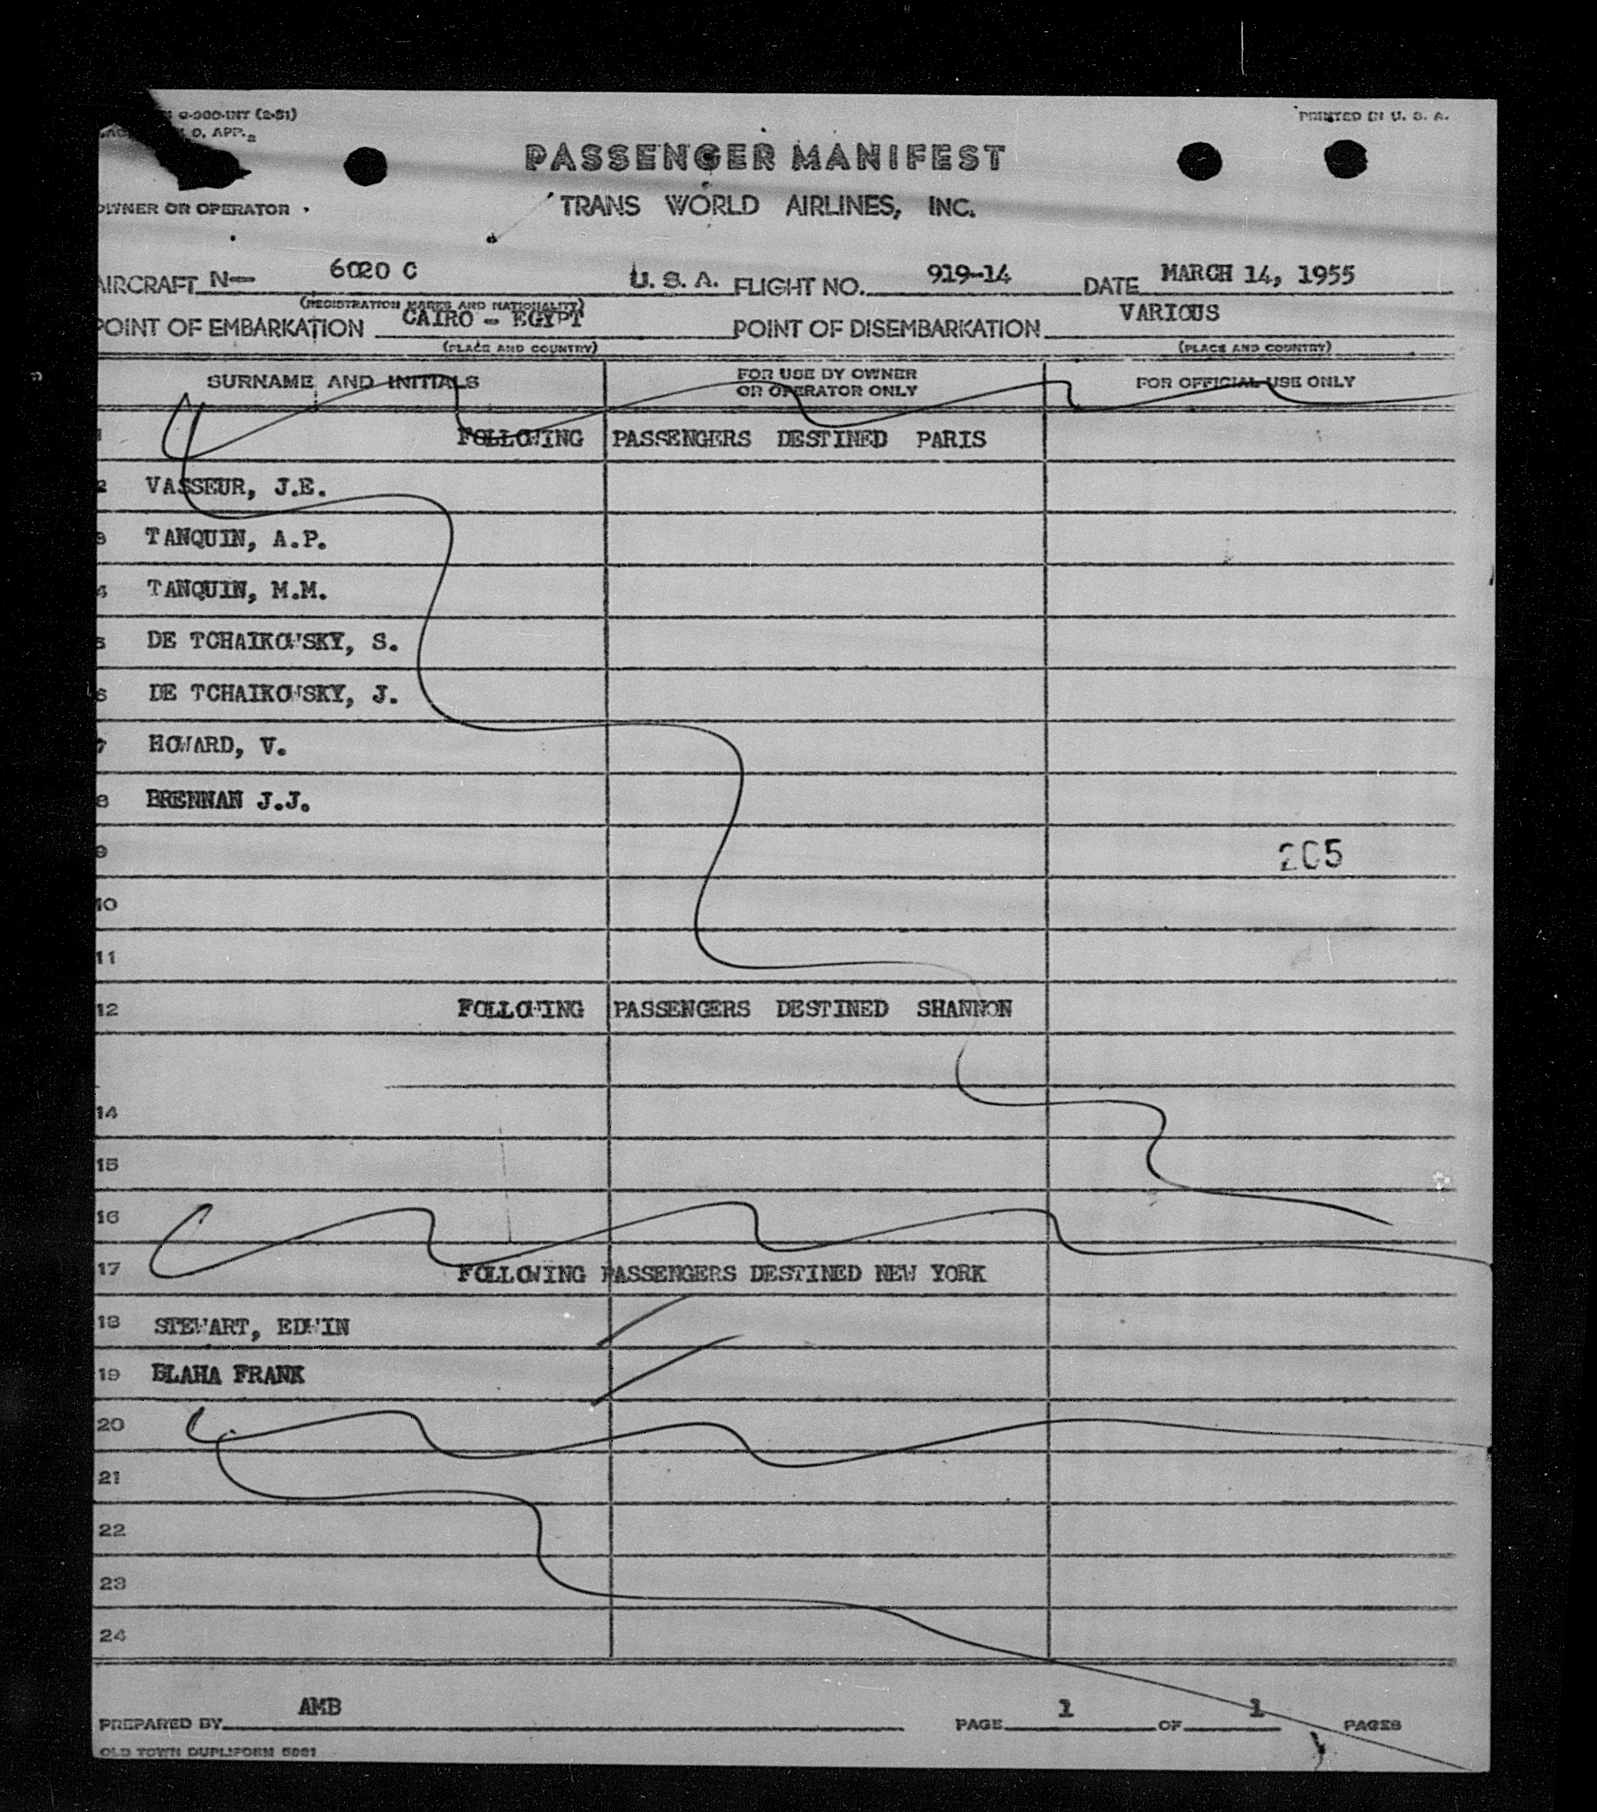 0-300-INT (2-51)
O. APP.
PRINTED IN U. S. A.
PASSENGER MANIFEST
OWNER OR OPERATOR
TRANS WORLD AIRLINES, INC.
AIRCRAFT N— 6020 C U. S. A. FLIGHT NO. 919-14 DATE MARCH 14, 1955
(REGISTRATION MARKS AND NATIONALITY)
POINT OF EMBARKATION CAIRO - EGYPT POINT OF DISEMBARKATION VARIOUS
(PLACE AND COUNTRY) (PLACE AND COUNTRY)
SURNAME AND INITIALS FOR USE BY OWNER OR OPERATOR ONLY FOR OFFICIAL USE ONLY
1 FOLLOWING PASSENGERS DESTINED PARIS
2 VASSEUR, J.E.
3 TANQUIN, A.P.
4 TANQUIN, M.M.
5 DE TCHAIKOWSKY, S.
6 DE TCHAIKOWSKY, J.
7 HOWARD, V.
8 BRENNAN J.J.
9 205
10
11
12 FOLLOWING PASSENGERS DESTINED SHANNON
14
15
16
17 FOLLOWING PASSENGERS DESTINED NEW YORK
18 STEWART, EDWIN
19 BLAHA FRANK
20
21
22
23
24
PREPARED BY AMB PAGE 1 OF 1 PAGES
OLD TOWN DUPLIFORM 5081